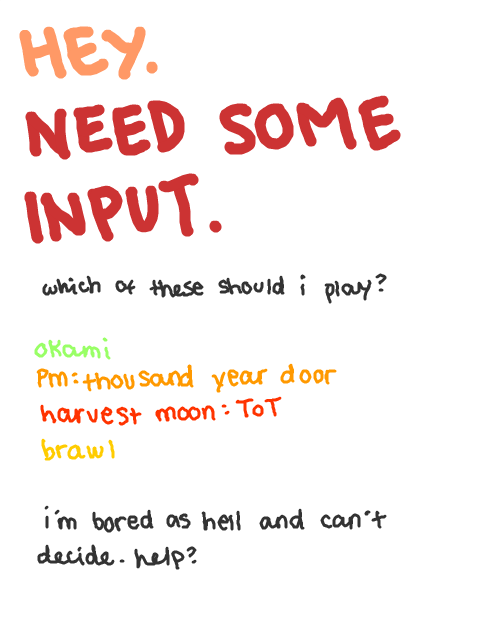 HEY.
NEED SOME
INPUT.
which of these should i play?
okami
Pm: thousand year door
harvest moon: ToT
brawl
i'm bored as hell and can't
decide. help?